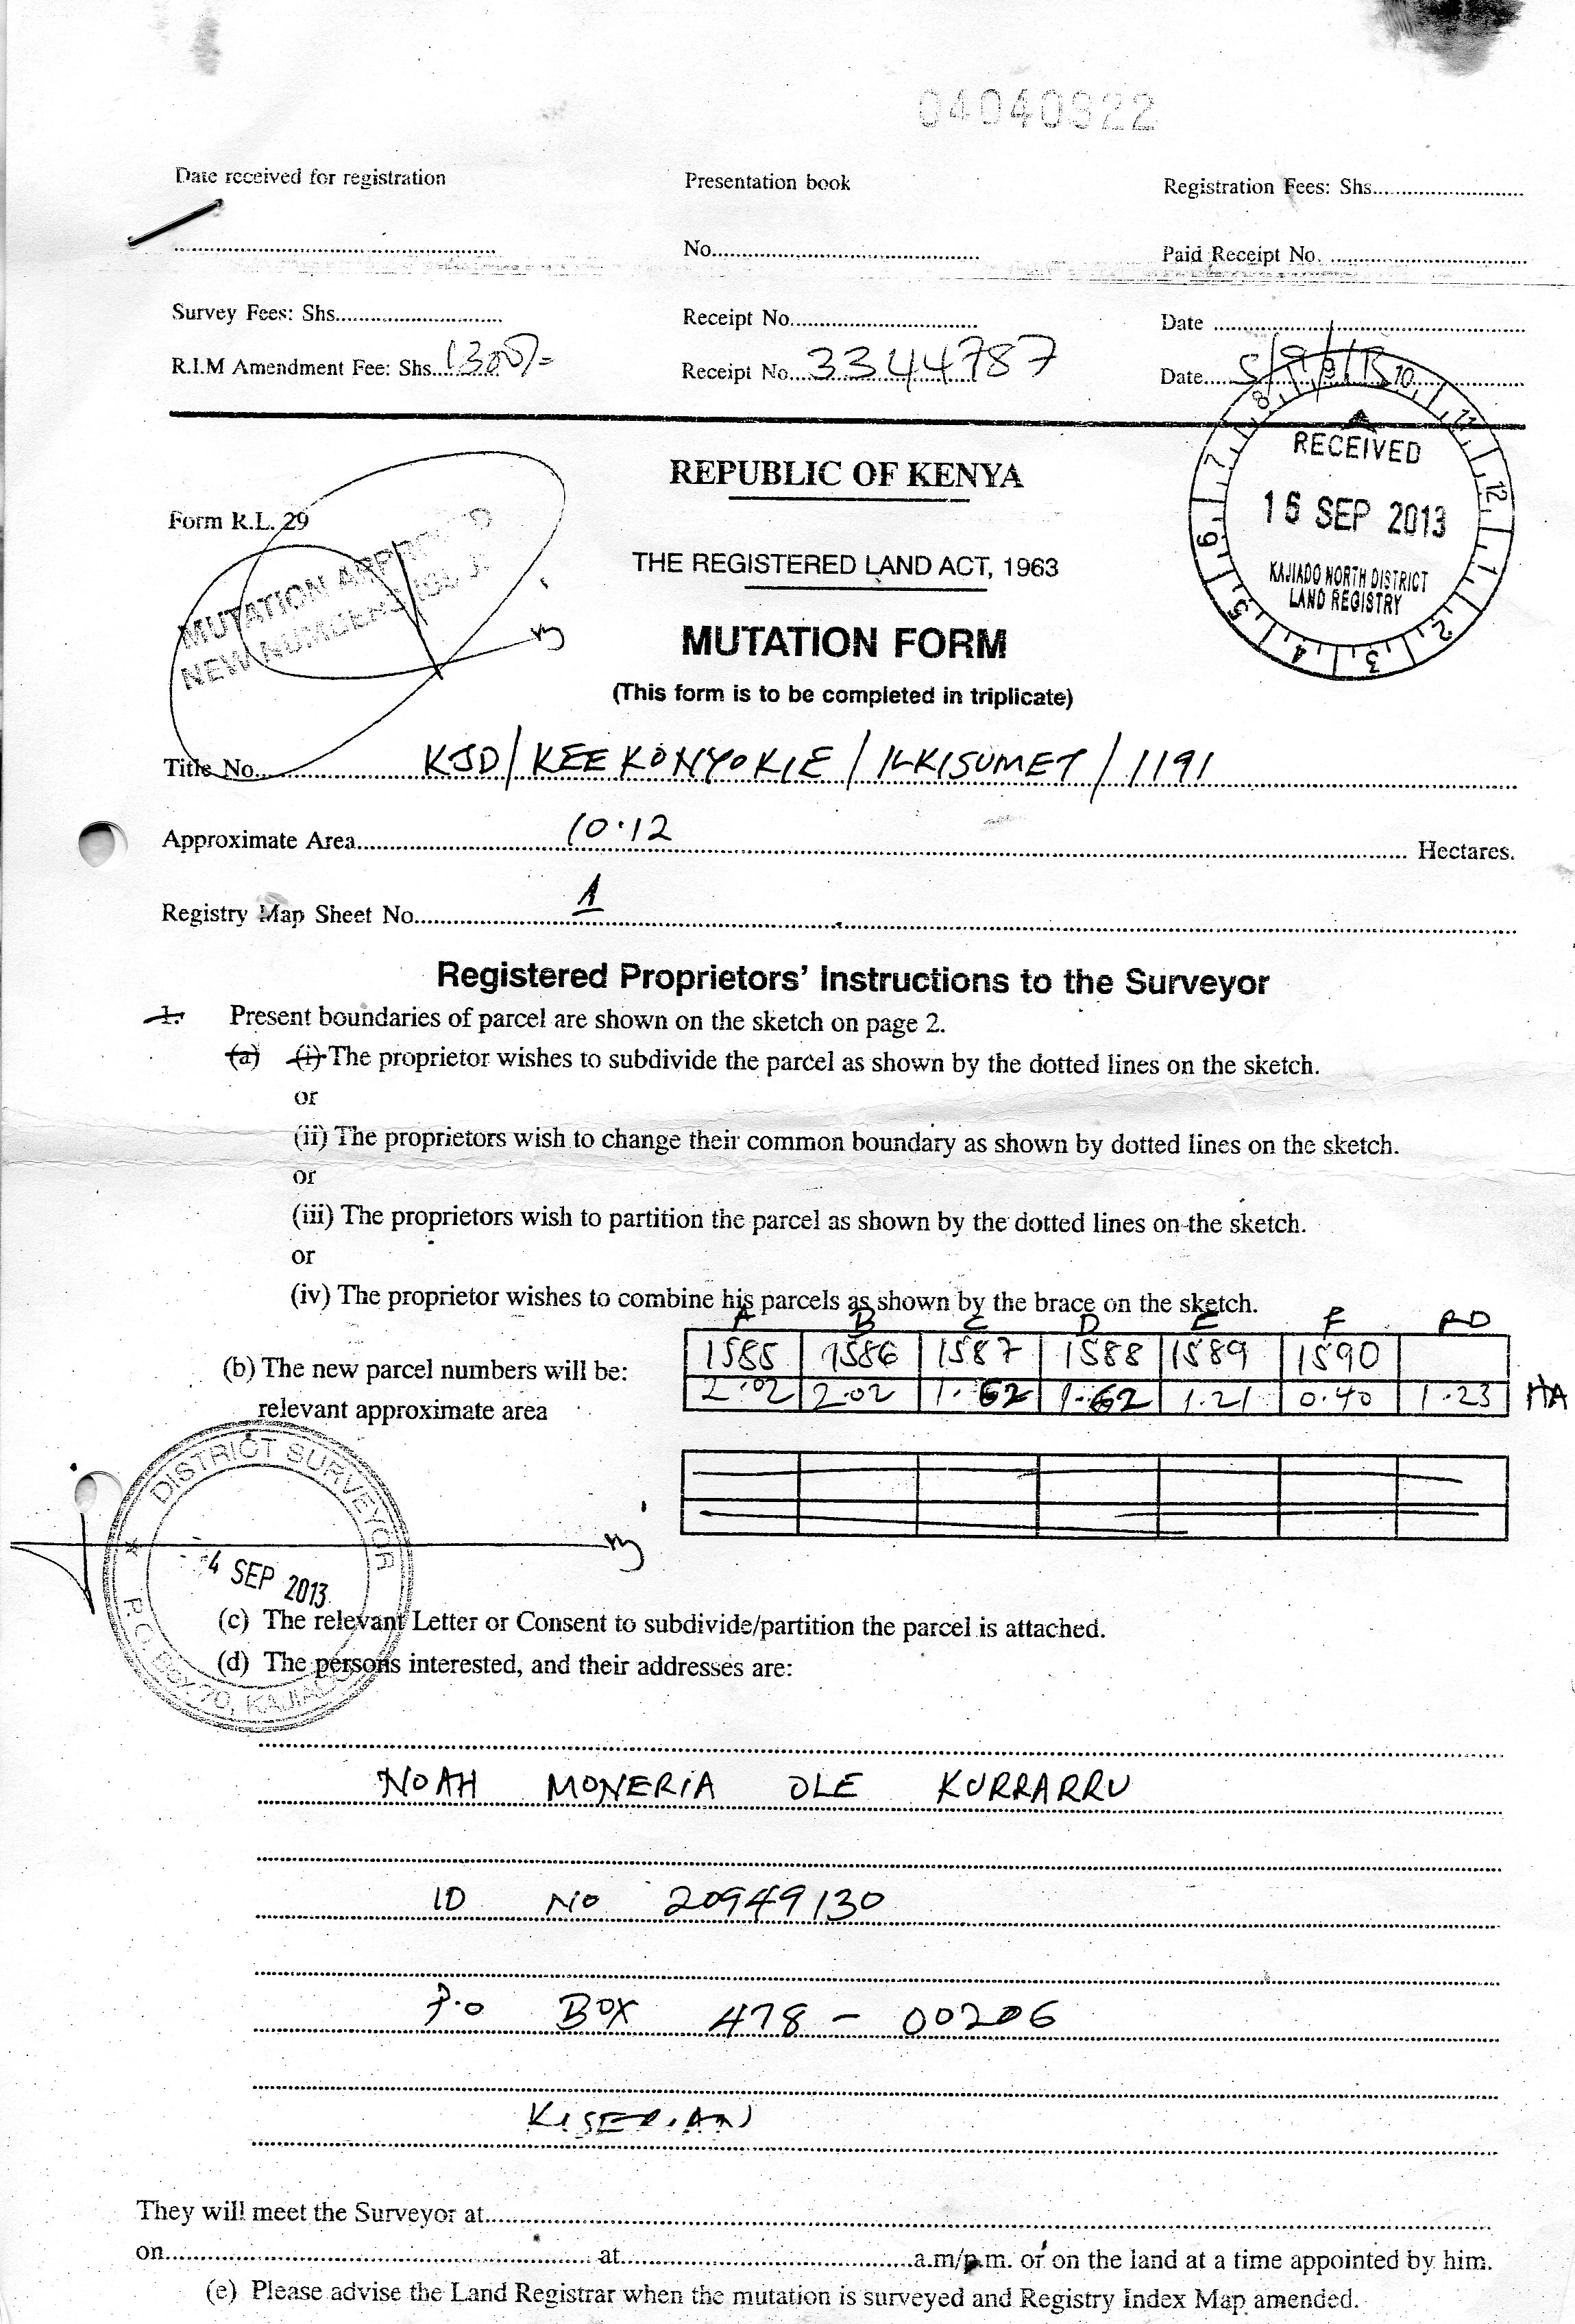 04040822
Date received for registration Presentation book Registration Fees: Shs..............................
.............................................................. No.................................................... Paid Receipt No. ......................................
Survey Fees: Shs............................... Receipt No................................... Date ..........................................................
R.I.M Amendment Fee: Shs. 1300/= Receipt No. 3344787 Date. 5/9/13
8 9 10 11 12 1 2 3 4 5 6 7
RECEIVED
16 SEP 2013
KAJIADO NORTH DISTRICT
LAND REGISTRY
REPUBLIC OF KENYA
Form R.L. 29
MUTATION APPROVED
NEW NUMBERS
THE REGISTERED LAND ACT, 1963
MUTATION FORM
(This form is to be completed in triplicate)
Title No. KJD/KEEKONYOKIE/ILKISUMET/1191
Approximate Area 10.12 Hectares.
Registry Map Sheet No. 1
Registered Proprietors' Instructions to the Surveyor
1. Present boundaries of parcel are shown on the sketch on page 2.
(a) (i) The proprietor wishes to subdivide the parcel as shown by the dotted lines on the sketch.
or
(ii) The proprietors wish to change their common boundary as shown by dotted lines on the sketch.
or
(iii) The proprietors wish to partition the parcel as shown by the dotted lines on the sketch.
or
(iv) The proprietor wishes to combine his parcels as shown by the brace on the sketch.
A B C D E F RD
(b) The new parcel numbers will be: 1585 1586 1587 1588 1589 1590
relevant approximate area 2.02 2.02 1.62 1.62 1.21 0.40 1.23 HA
DISTRICT SURVEYOR
-4 SEP 2013
P.O. BOX 70, KAJIADO
(c) The relevant Letter or Consent to subdivide/partition the parcel is attached.
(d) The persons interested, and their addresses are:
NOAH MONERIA OLE KURRARRU
ID NO 20949130
P.O BOX 478 - 00206
KISERIAN
They will meet the Surveyor at..............................................................
on.............................................at.............................................a.m/p.m. or on the land at a time appointed by him.
(e) Please advise the Land Registrar when the mutation is surveyed and Registry Index Map amended.